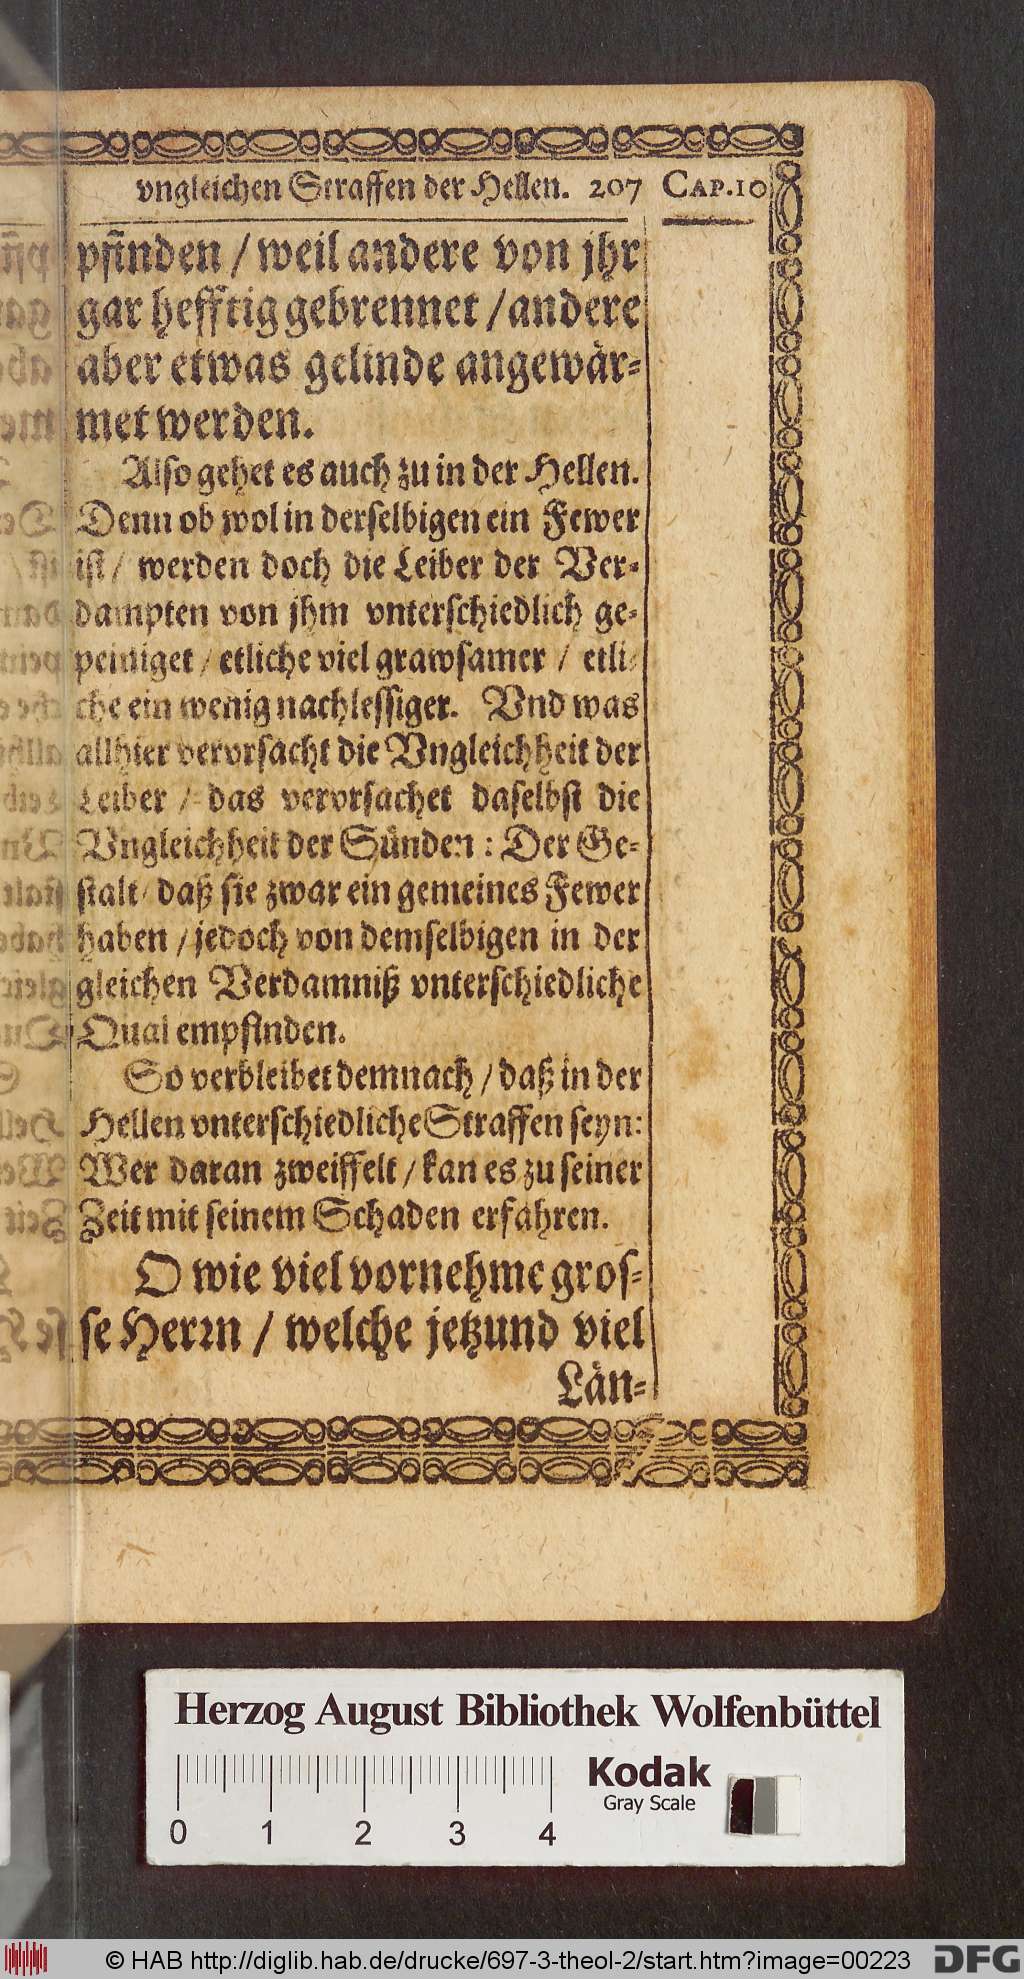 vngleichen Straffen der Hellen. 207 CAP.10
pfinden / weil andere von jhr
gar hefftig gebrennet / andere
aber etwas gelinde angewår⸗
met werden.
Also gehet es auch zu in der Hellen.
Denn ob wol in derselbigen ein Fewer
ist / werden doch die Leiber der Ver⸗
dampten von jhm vnterschiedlich ge⸗
peiniget / etliche viel grawsamer / etli⸗
che ein wenig nachlessiger. Vnd was
allhier vervrsacht die Vngleichheit der
Leiber / das vervrsachet daselbst die
Vngleichheit der Sünden: Der Ge⸗
stalt / daß sie zwar ein gemeines Fewer
haben / jedoch von demselbigen in der
gleichen Verdamniß vnterschiedliche
Qual empfinden.
So verbleibet demnach / daß in der
Hellen vnterschiedliche Straffen seyn:
Wer daran zweiffelt / kan es zu seiner
Zeit mit seinem Schaden erfahren.
O wie viel vornehme gros⸗
se Herꝛn / welche jetzund viel
Län⸗
Herzog August Bibliothek Wolfenbüttel
Kodak
Gray Scale
0 1 2 3 4
© HAB http://diglib.hab.de/drucke/697-3-theol-2/start.htm?image=00223
DFG